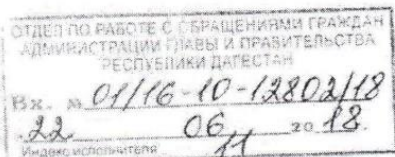 ОТДЕЛ ПО РАБОТЕ С ОБРАЩЕНИЯМИ ГРАЖДАН
АДМИНИСТРАЦИИ ГЛАВЫ И ПРАВИТЕЛЬСТВА
РЕСПУБЛИКИ ДАГЕСТАН
Вх. № 01/16-10-12802/18
.22. 06 20 18.
Индекс исполнителя 11